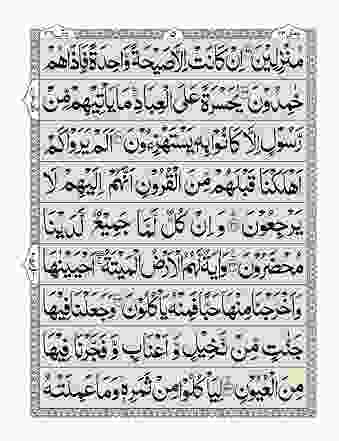 مُنْزِلِیْنَ اِنْ کَانَتْ اِلَّا صَیْحَةً وَّاحِدَةً فَاِذَا هُمْ
خٰمِدُوْنَ یٰحَسْرَةً عَلَی الْعِبَادِ مَا یَاْتِیْهِمْ مِّنْ
رَّسُوْلٍ اِلَّا کَانُوْا بِهٖ یَسْتَهْزِءُوْنَ اَلَمْ یَرَوْا کَمْ
اَهْلَکْنَا قَبْلَهُمْ مِّنَ الْقُرُوْنِ اَنَّهُمْ اِلَیْهِمْ لَا
یَرْجِعُوْنَ وَ اِنْ کُلٌّ لَّمَّا جَمِیْعٌ لَّدَیْنَا
مُحْضَرُوْنَ وَ اٰیَةٌ لَّهُمُ الْاَرْضُ الْمَیْتَةُ اَحْیَیْنٰهَا
وَ اَخْرَجْنَا مِنْهَا حَبًّا فَمِنْهُ یَاْکُلُوْنَ وَ جَعَلْنَا فِیْهَا
جَنّٰتٍ مِّنْ نَّخِیْلٍ وَّ اَعْنَابٍ وَّ فَجَّرْنَا فِیْهَا
مِنَ الْعُیُوْنِ لِیَاْکُلُوْا مِنْ ثَمَرِهٖ وَ مَا عَمِلَتْهُ